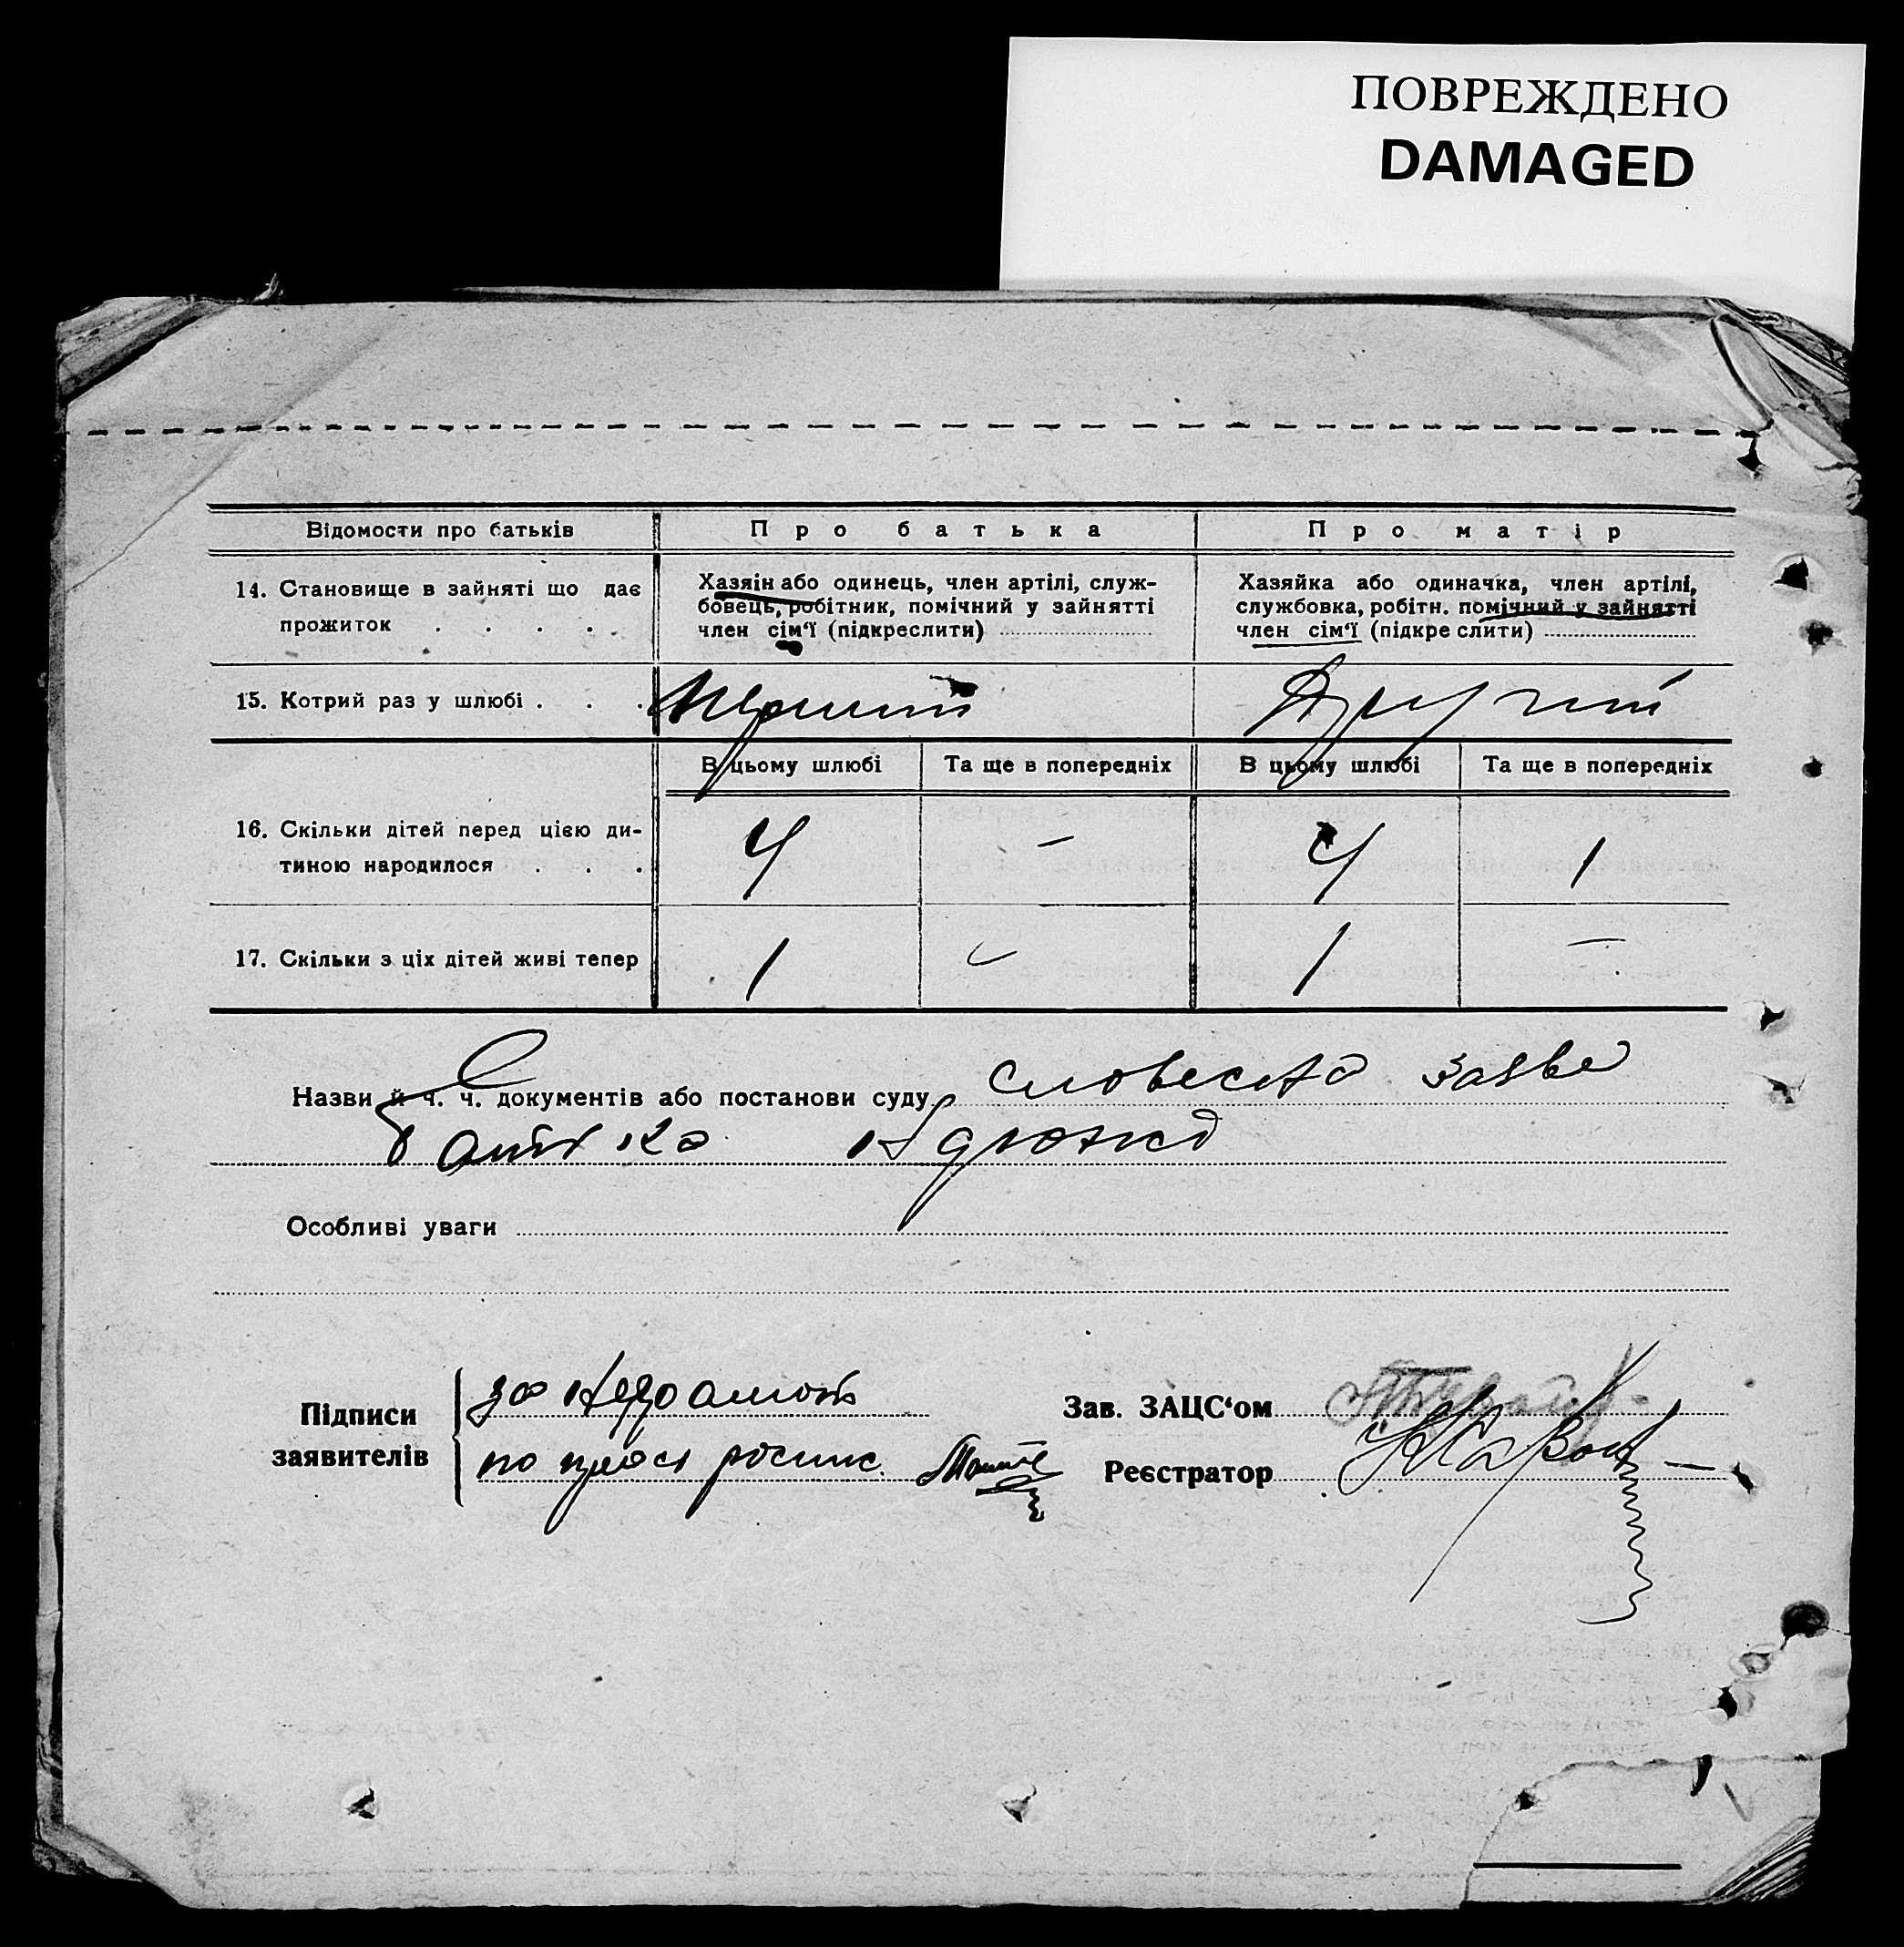 ПОВРЕЖДЕНО
DAMAGED
Відомости про батьків
Про батька
Про матір
14. Становище в зайняті що дає
прожиток . . . .
Хазяін або одинець, член артілі, служ-
бовець, робітник, помічний у зайнятті
член сім‘ї (підкреслити)
Хазяйка або одиначка, член артілі,
службовка, робітн. помічний у зайнятті
член сім‘ї (підкреслити)
15. Котрий раз у шлюбі . . .
Перший
Другий
В цьому шлюбі
Та ще в попередніх
В цьому шлюбі
Та ще в попередніх
16. Скільки дітей перед цією ди-
тиною народилося . . .
4
-
4
1
17. Скільки з ціх дітей живі тепер
1
-
1
-
Назви й ч. ч. документів або постанови суду словесна заява
батька
Особливі уваги
Підписи
заявителів
за
по росппс.
Зав. ЗАЦС‘ом
Реєстратор